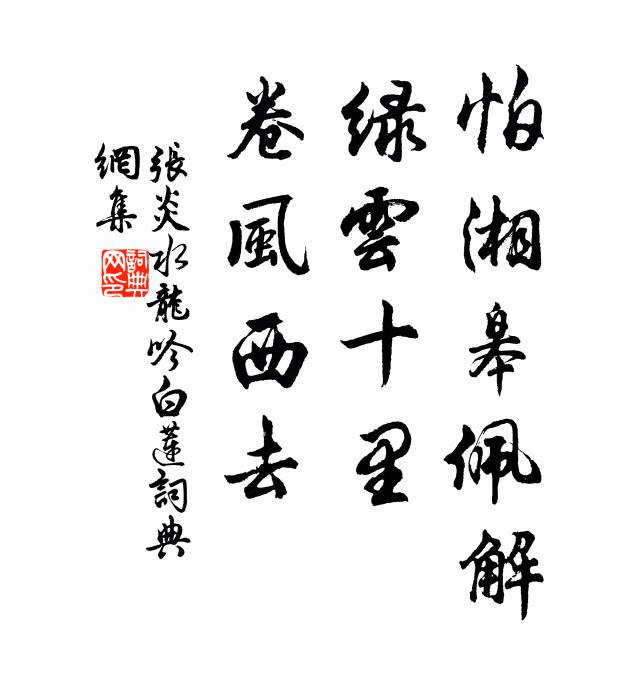 怕湘皋佩解
緑雲十里
卷風西去
張炎水龍吟白蓮詞典
網集
詞典
网印